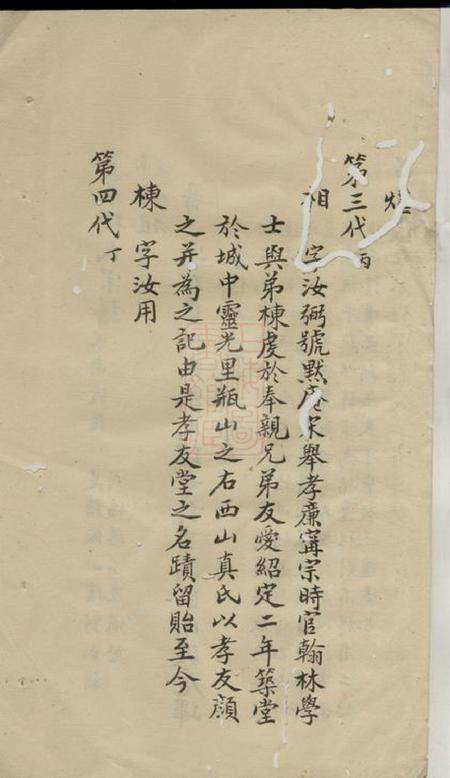 第三代 丙
相 字汝弼號默庵宋舉孝廉寗宗時官翰林學
士與弟棟虔於奉親兄弟友愛紹定二年築堂
於城中靈光里瓶山之右西山真氏以孝友顏
之并為之記由是孝友堂之名蹟留貽至今
棟 字汝用
第四代 丁